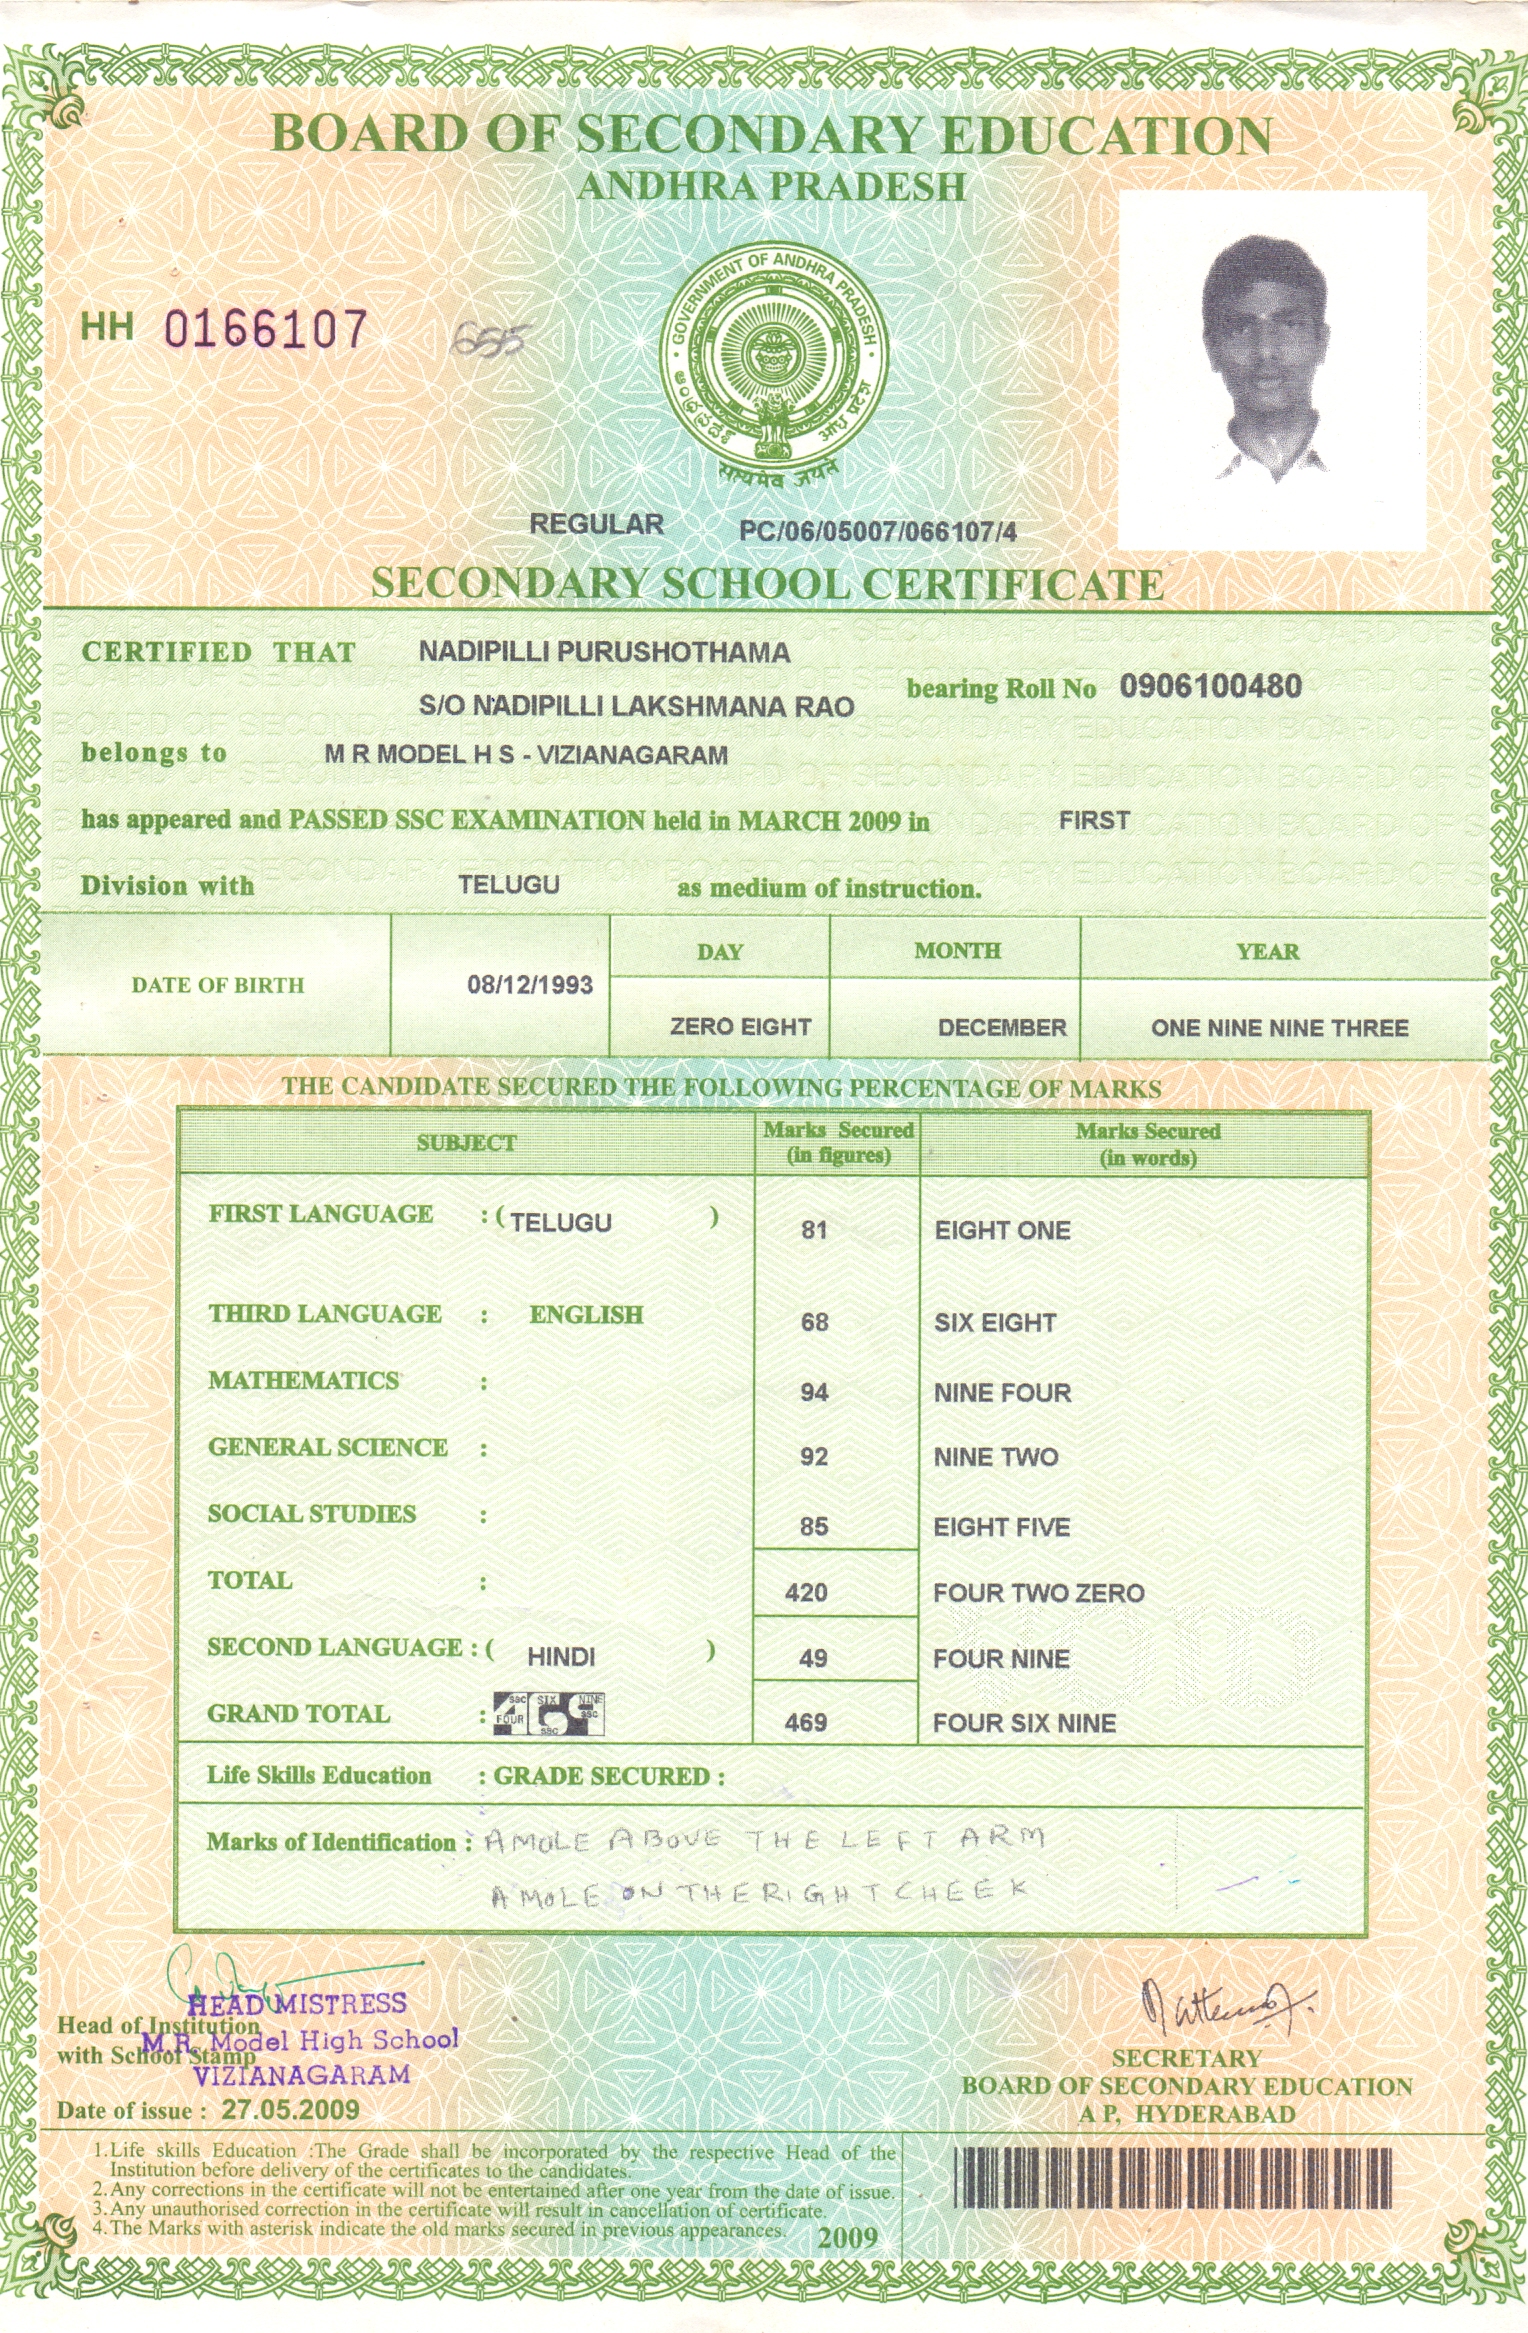 BOARD OF SECONDARY EDUCATION
ANDHRA PRADESH
HH 0166107
GOVERNMENT OF ANDHRA PRADESH
सत्यमेव जयते
REGULAR PC/06/05007/066107/4
SECONDARY SCHOOL CERTIFICATE
CERTIFIED THAT NADIPILLI PURUSHOTHAMA
S/O NADIPILLI LAKSHMANA RAO bearing Roll No 0906100480
belongs to M R MODEL H S - VIZIANAGARAM
has appeared and PASSED SSC EXAMINATION held in MARCH 2009 in FIRST
Division with TELUGU as medium of instruction.
DATE OF BIRTH 08/12/1993 DAY MONTH YEAR
ZERO EIGHT DECEMBER ONE NINE NINE THREE
THE CANDIDATE SECURED THE FOLLOWING PERCENTAGE OF MARKS
SUBJECT Marks Secured (in figures) Marks Secured (in words)
FIRST LANGUAGE : ( TELUGU ) 81 EIGHT ONE
THIRD LANGUAGE : ENGLISH 68 SIX EIGHT
MATHEMATICS : 94 NINE FOUR
GENERAL SCIENCE : 92 NINE TWO
SOCIAL STUDIES : 85 EIGHT FIVE
TOTAL : 420 FOUR TWO ZERO
SECOND LANGUAGE : ( HINDI ) 49 FOUR NINE
GRAND TOTAL : 469 FOUR SIX NINE
Life Skills Education : GRADE SECURED :
Marks of Identification : A MOLE ABOVE THE LEFT ARM
A MOLE ON THE RIGHT CHEEK
HEAD MISTRESS
Head of Institution
M.R. Model High School
with School Stamp
VIZIANAGARAM
Date of issue : 27.05.2009
SECRETARY
BOARD OF SECONDARY EDUCATION
A P, HYDERABAD
1.Life skills Education :The Grade shall be incorporated by the respective Head of the
Institution before delivery of the certificates to the candidates.
2.Any corrections in the certificate will not be entertained after one year from the date of issue.
3.Any unauthorised correction in the certificate will result in cancellation of certificate.
4.The Marks with asterisk indicate the old marks secured in previous appearances.
2009